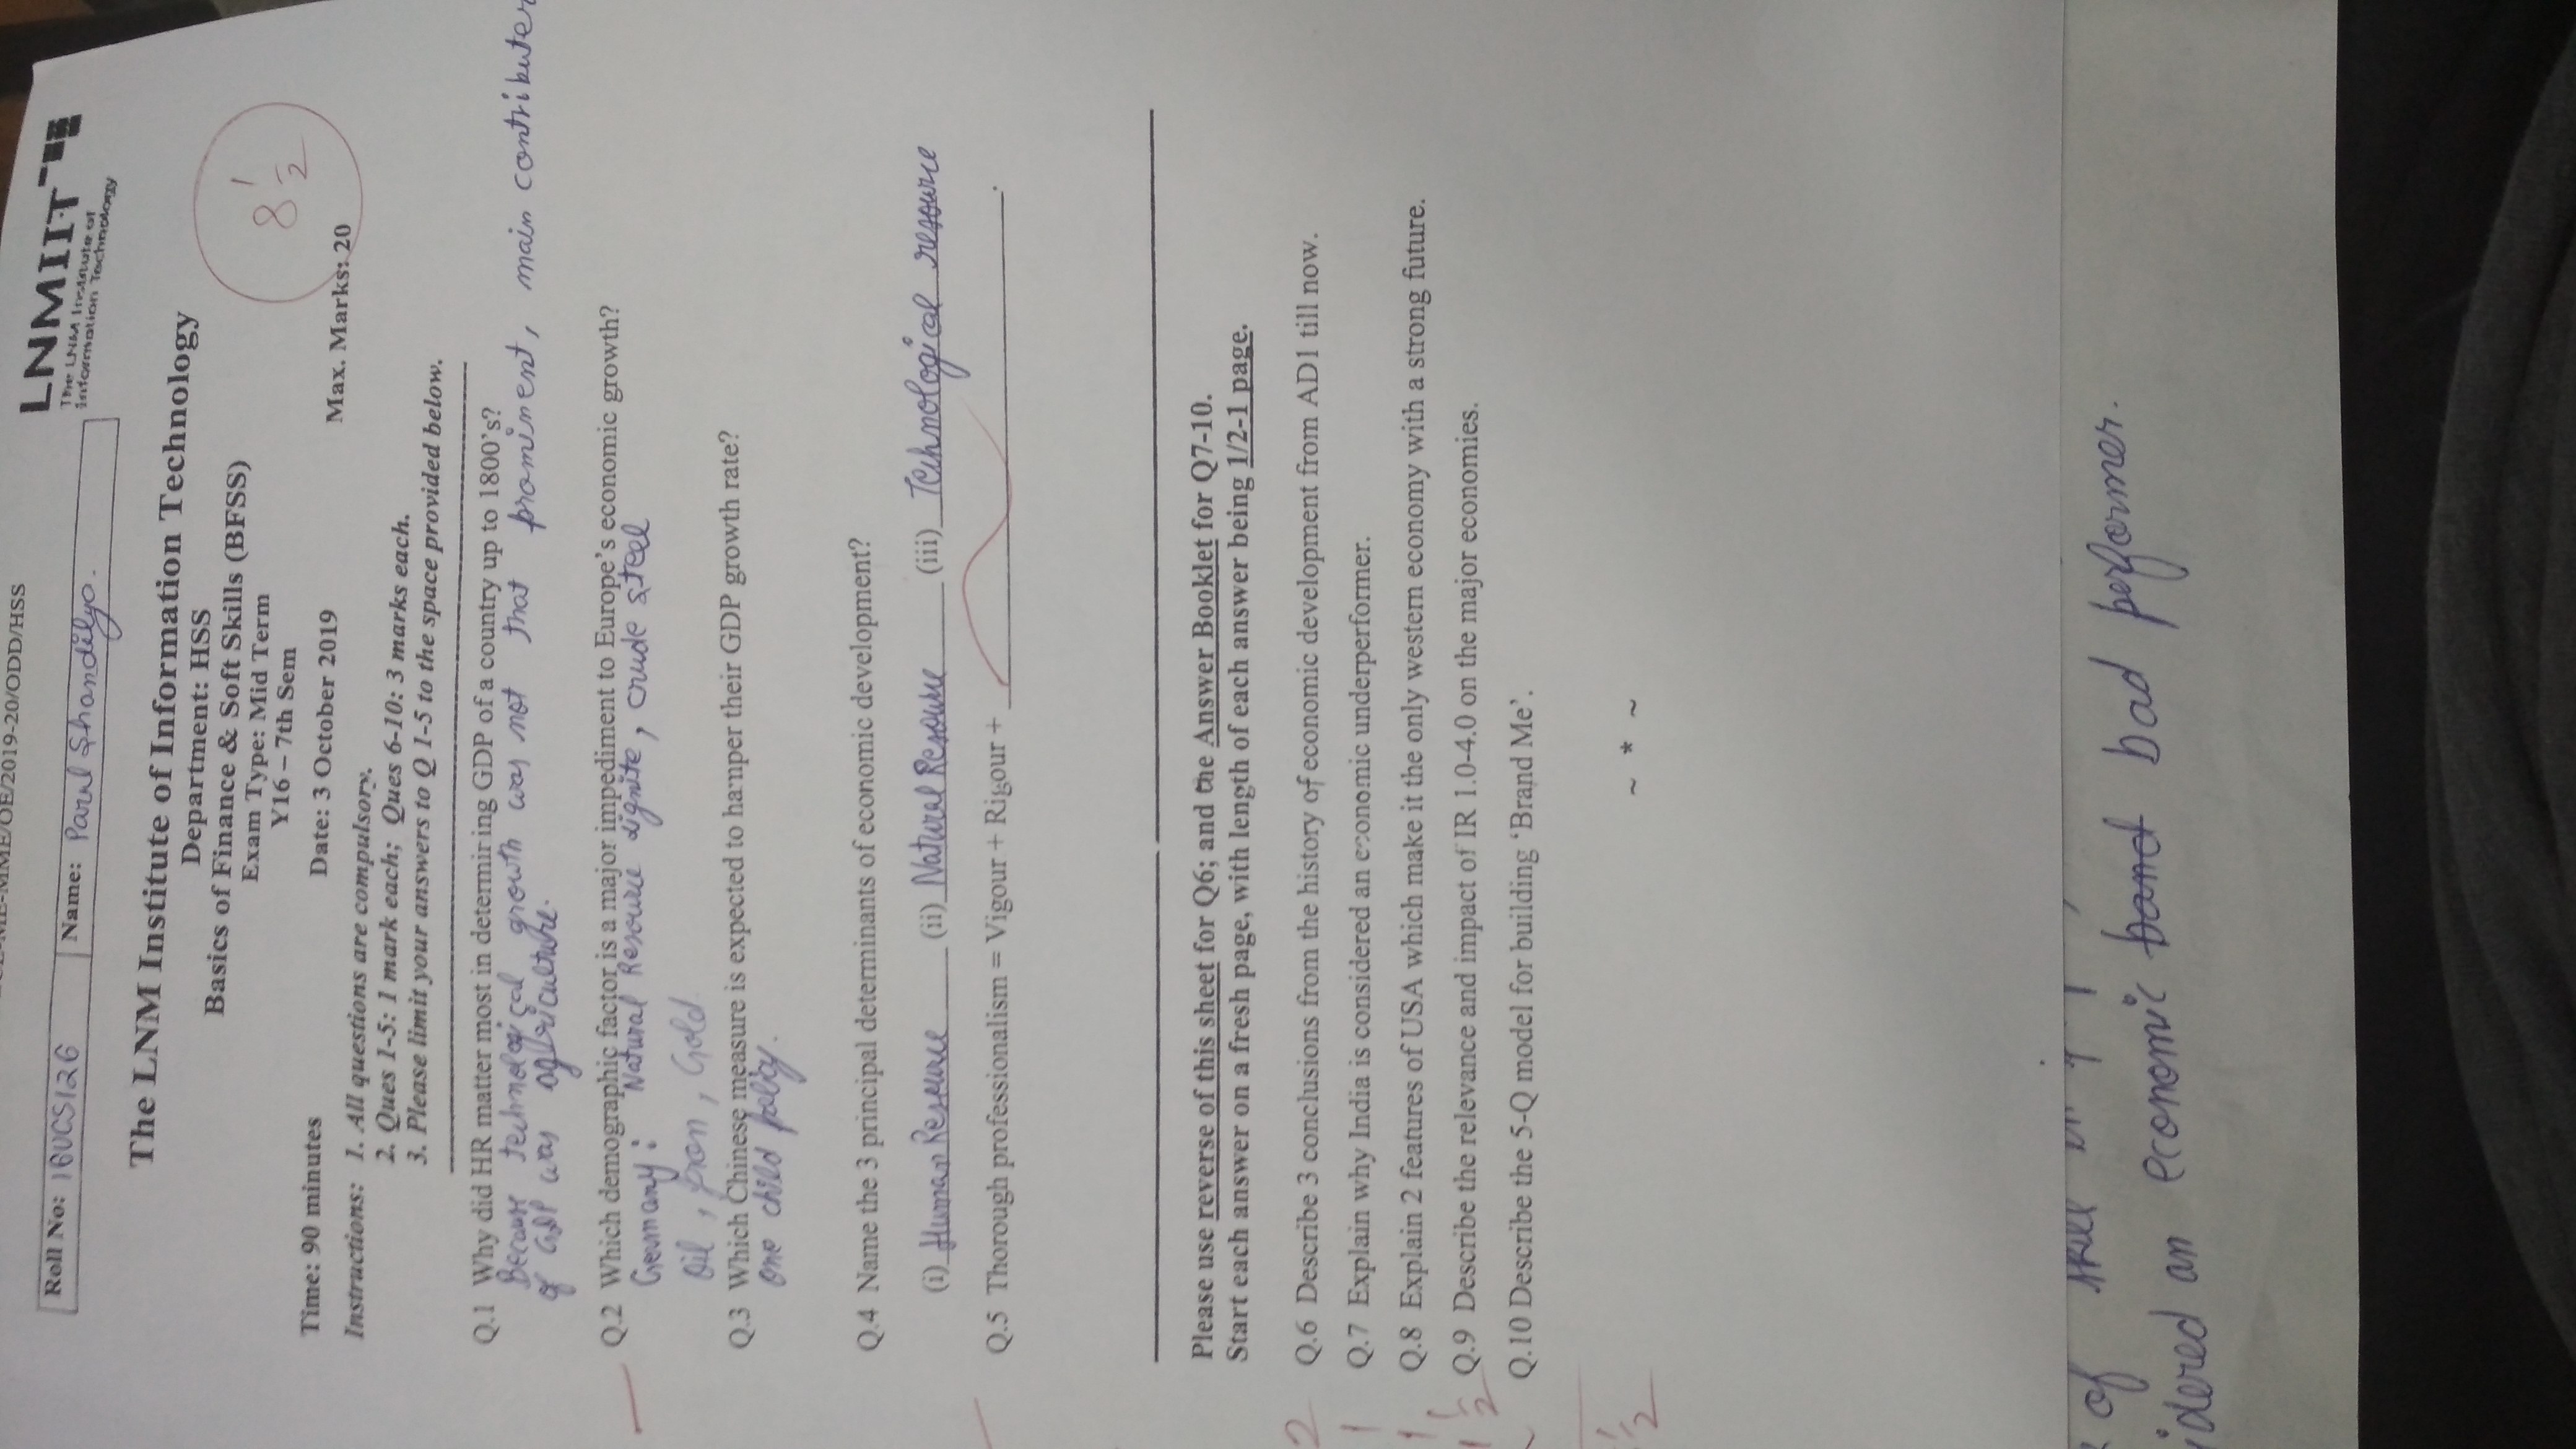 -ME/OE/2019-20/ODD/HSS
Roll No: 16UCS126
Name: Parul Shandilya.
LNMIIT
The LNM Institute of
Information Technology
The LNM Institute of Information Technology
Department: HSS
Basics of Finance & Soft Skills (BFSS)
Exam Type: Mid Term
Y16 – 7th Sem
8 1/2
Time: 90 minutes
Date: 3 October 2019
Max. Marks: 20
Instructions: 1. All questions are compulsory.
2. Ques 1-5: 1 mark each; Ques 6-10: 3 marks each.
3. Please limit your answers to Q 1-5 to the space provided below.
Q.1 Why did HR matter most in determining GDP of a country up to 1800's?
Because technological growth was not that prominent, main contributer
of GDP was agriculture.
Q.2 Which demographic factor is a major impediment to Europe's economic growth?
Germany: Natural Resource lignite, crude steel
Oil, Iron, Gold
Q.3 Which Chinese measure is expected to hamper their GDP growth rate?
One child policy.
Q.4 Name the 3 principal determinants of economic development?
(i) Human Resource (ii) Natural Resource (iii) Technological resource
Q.5 Thorough professionalism = Vigour + Rigour + .
Please use reverse of this sheet for Q6; and the Answer Booklet for Q7-10.
Start each answer on a fresh page, with length of each answer being 1/2-1 page.
2 Q.6 Describe 3 conclusions from the history of economic development from AD1 till now.
1 Q.7 Explain why India is considered an economic underperformer.
1 Q.8 Explain 2 features of USA which make it the only western economy with a strong future.
1 1/2 Q.9 Describe the relevance and impact of IR 1.0-4.0 on the major economies.
Q.10 Describe the 5-Q model for building 'Brand Me'.
1/2
~ * ~
of
idered an economic bad performer.